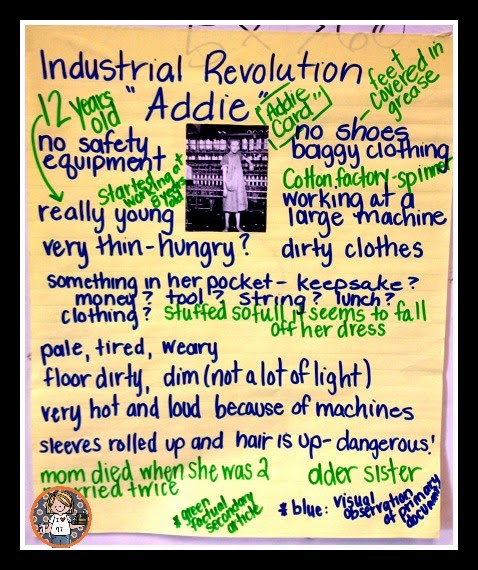 Industrial Revolution
"Addie"
12 years
old
"Addie
Card"
feet
covered in
grease
no safety
equipment
no shoes
baggy clothing
Started
working at
8 years
old
Cotton factory-spinner
really young
working at a
large machine
very thin-hungry?
dirty clothes
something in her pocket- keepsake?
money? tool? string? lunch?
clothing? stuffed so full it seems to fall
off her dress
pale, tired, weary
floor dirty, dim (not a lot of light)
very hot and loud because of machines
sleeves rolled up and hair is up- dangerous!
mom died when she was 2
older sister
twice
* green
factual
secondary
article
* blue: visual
observation
of primary
document